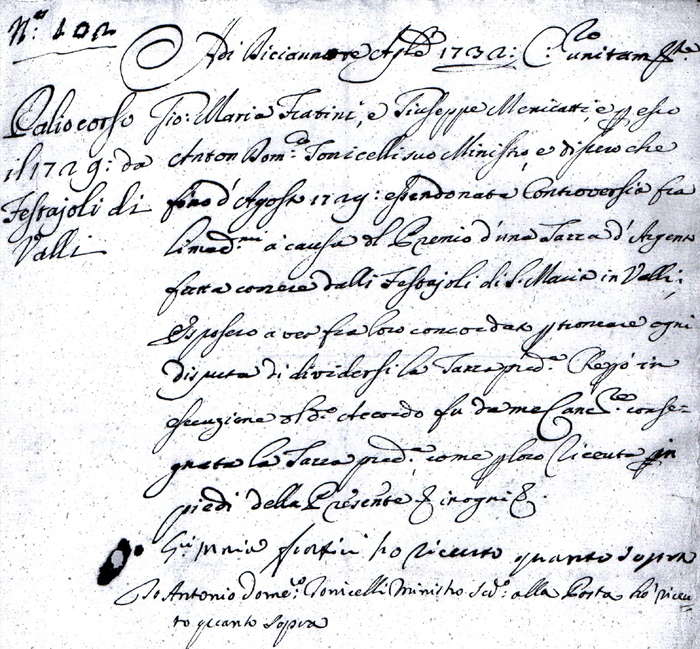 N.º 402
Palio corso
il 1729: da
Festajoli di
Valli
Adi Diciannove 1732:
Gio: Maria Fratini, e Giuseppe Menicatti, e p esso
Anton Dom.co Tonicelli suo Ministro, e dissero che
fino d'Agosto 1729: essendo nata Controversia fra
li med.mi a causa del Premio d'una Tazza d'Argento
fatta correre dalli Festajoli di S. Maria in Valli;
Esposero aver fra loro concordato p troncare ogni
disputa di dividersi la Tazza pred.a in
esecuzione del d.o Accordo fu da me Canc.re conse=
gnata la Tazza pred.a, come p loro ricevuta in
piedi della Presente in ogni
Maria fratini ho ricevuto quanto sopra
Io Antonio Dome.co Tonicelli Ministro alla Posta ho riceu=
to quanto sopra